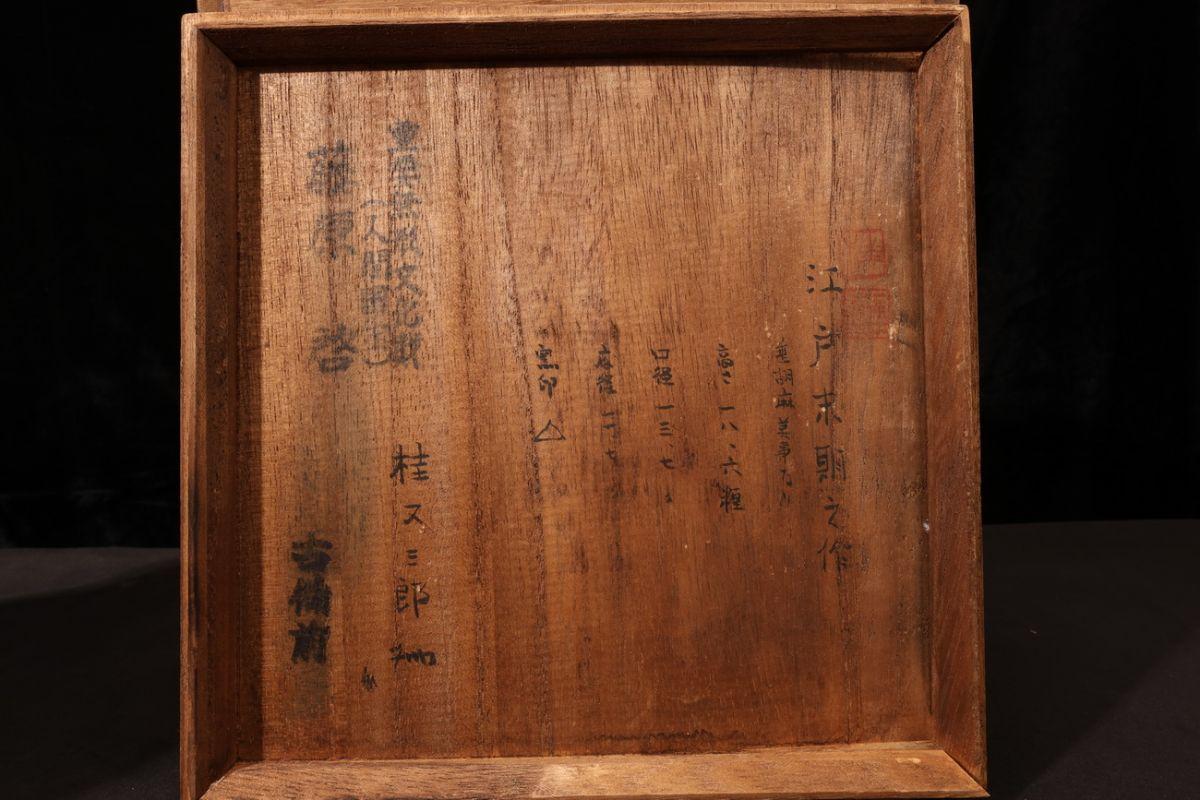 江戸末期之作
胡麻美事
高さ 一八、六糎
口径 一三、七 〃
底径 一一、七 〃
窯印 △
桂又三郎
重要無形文化財
(人間国宝)
藤原 啓
古備前